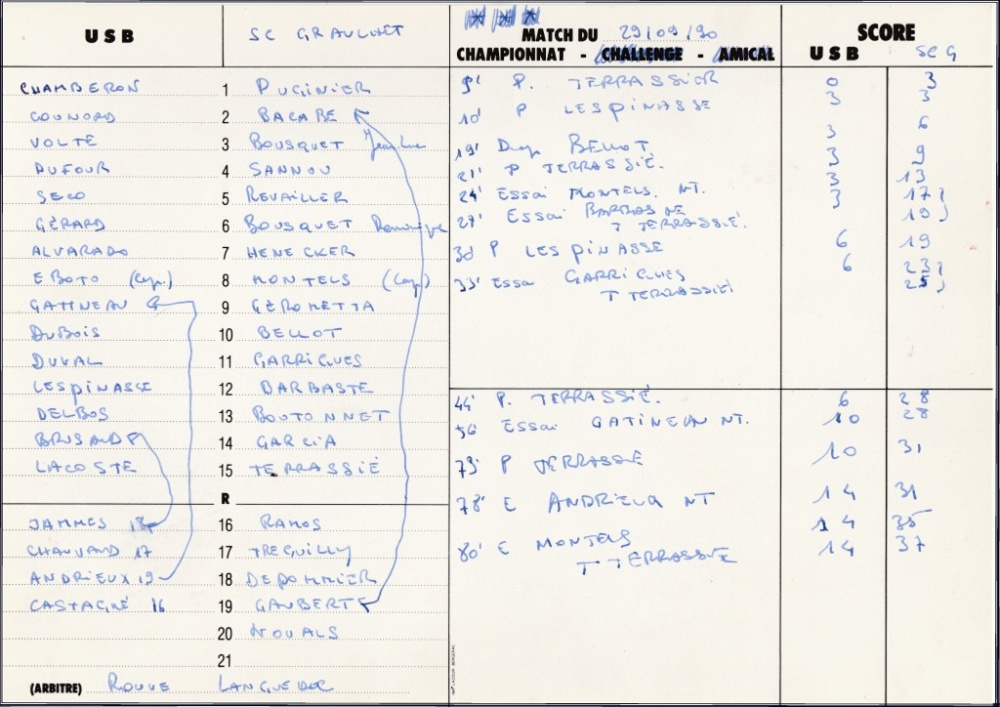 USB SC GRAULHET MATCH DU 29/09/90 SCORE
CHAMPIONNAT - CHALLENGE - AMICAL USB SC G
CHAMBERON 1 PUGINIER
COUNORD 2 BACABE
VOLTE 3 BOUSQUET Jean Luc
DUFOUR 4 SANNOU
SECO 5 REVAILLER
GÉRARD 6 BOUSQUET Dominique
ALVARADO 7 HENECKER
EBOTO (Cap.) 8 MONTELS (Cap)
GATINEAU 9 GÉROMETTA
DUBOIS 10 BELLOT
DUVAL 11 GARRIGUES
LESPINASSE 12 BARBASTE
DELBOS 13 BOUTONNET
14 GARCIA
LACOSTE 15 TERRASSIÉ
R
JAMMES 18 16 RAMOS
CHAUVAUD 17 17 TREGUILLY
ANDRIEUX 19 18 DEPOMMIER
CASTAGNÉ 16 19 GAUBERT
20 NOUALS
21
(ARBITRE) ROUVE LANGUEDOC
9' P. TERRASSIER 0 3
10' P LESPINASSE 3 3
19' Drop BELLOT 3 6
21' P TERRASSIÉ. 3 9
24' Essai MONTELS. NT. 3 13
29' Essai BARBASTE 3 17
T TERRASSIÉ. 19
30' P LESPINASSE 6 19
33' Essai GARRIGUES 6 23
T TERRASSIÉ 25
44' P. TERRASSIÉ. 6 28
56' Essai GATINEAU NT. 10 28
73' P TERRASSIÉ 10 31
78' E ANDRIEUX NT 14 31
80' E MONTELS 14 35
T TERRASSIÉ 14 37